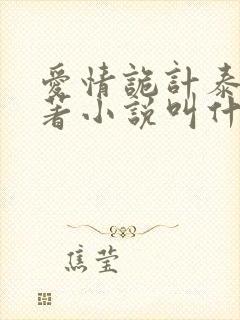 愛情詭計泰
著小説叫什
焦莹